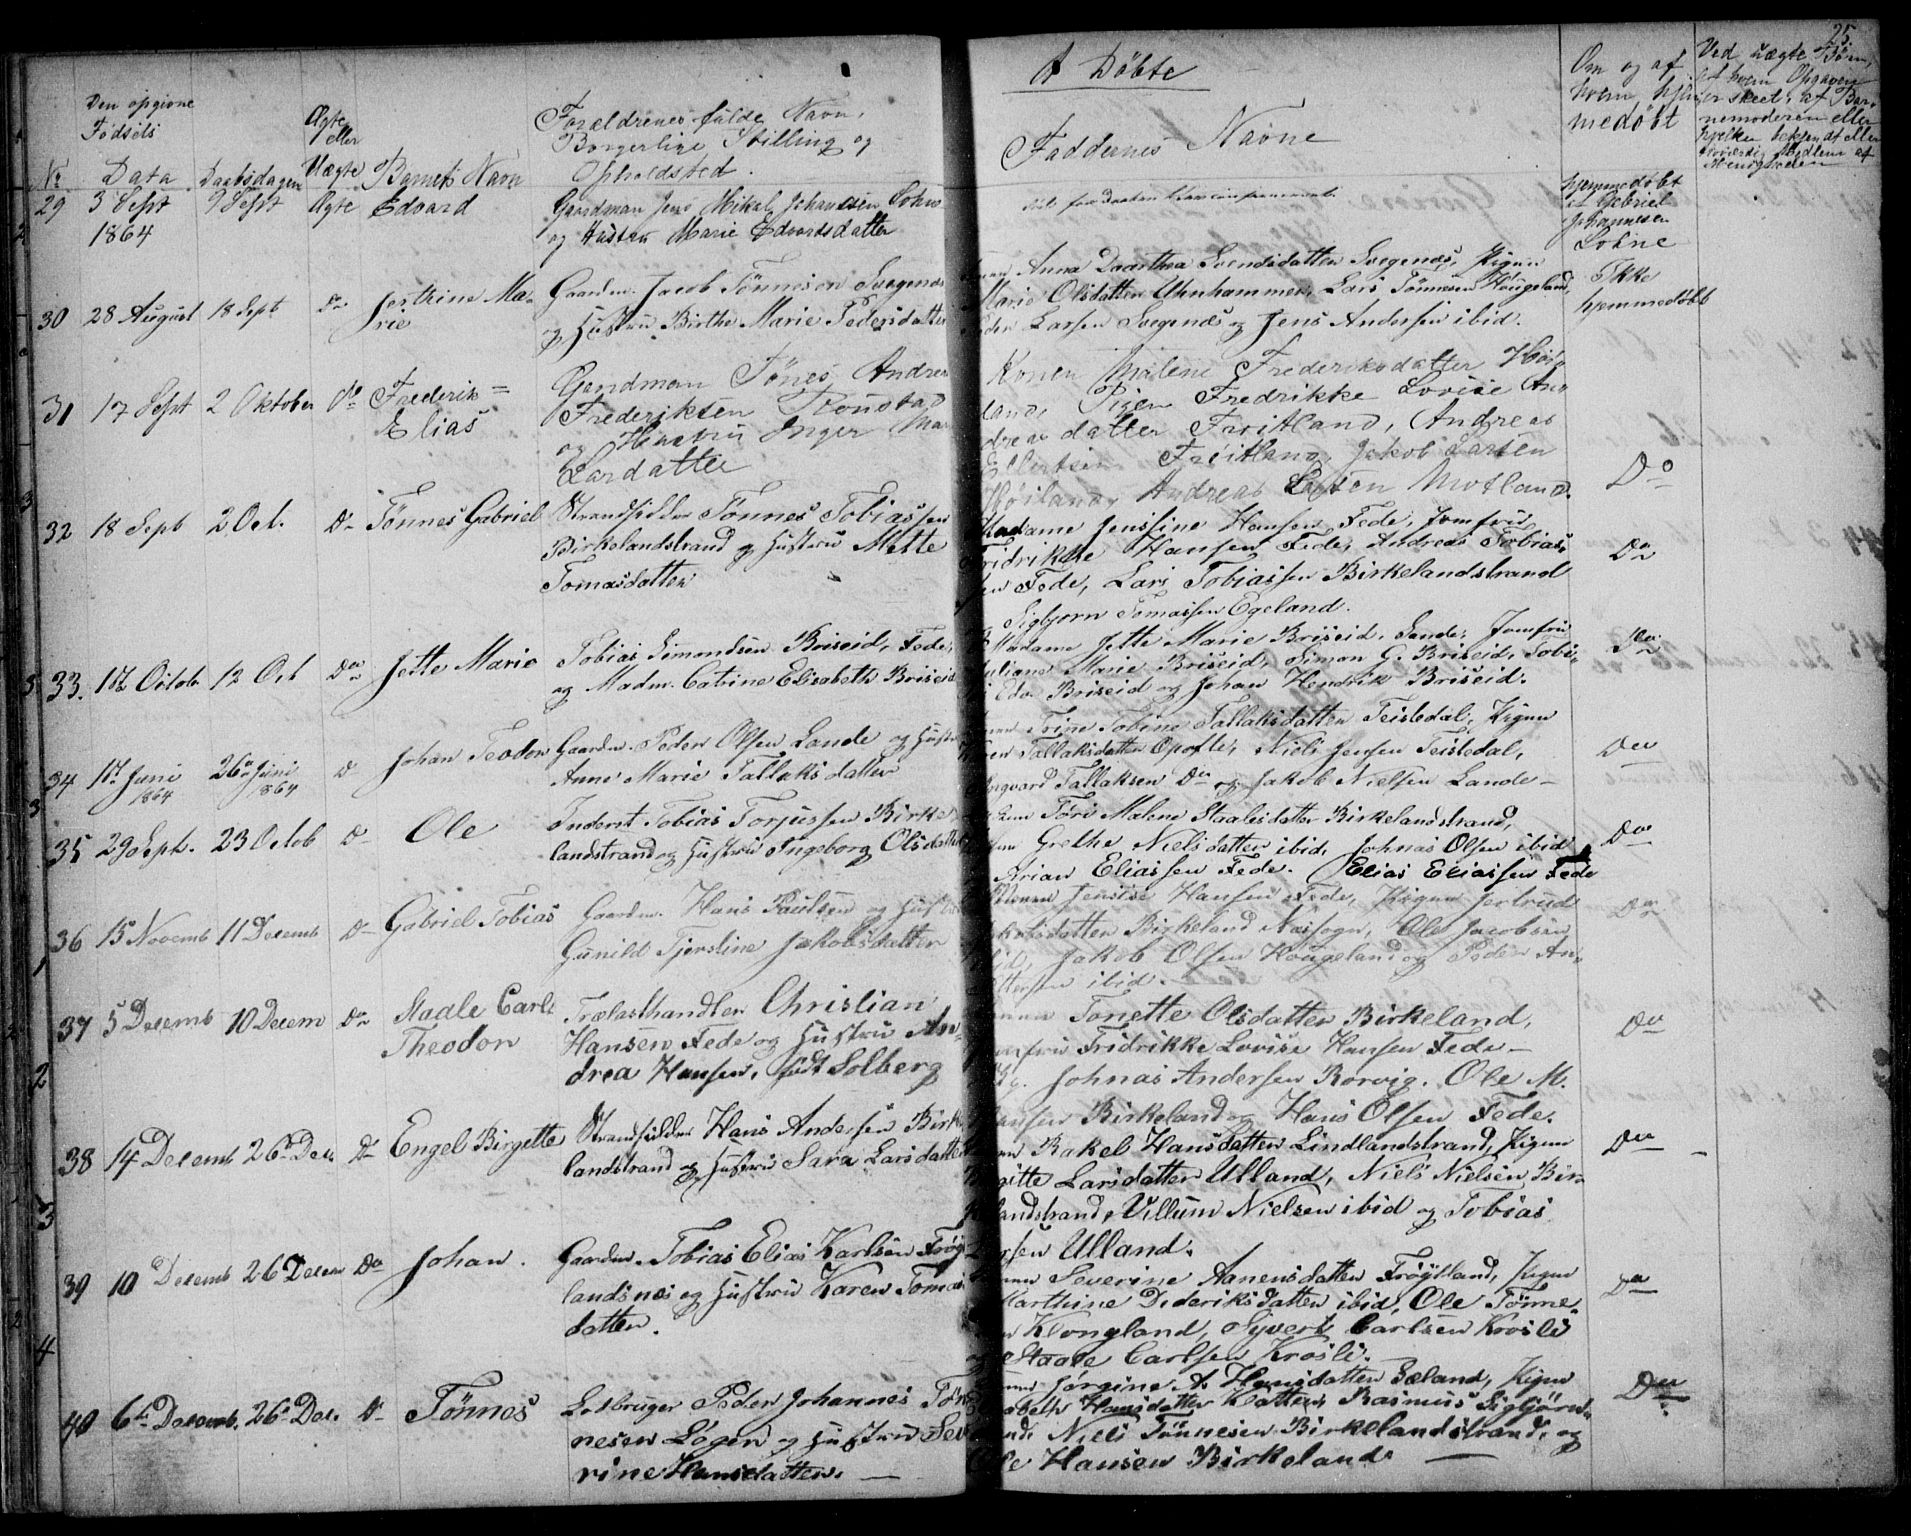 25.
A Döbte
No
Den opgivne Födsels Data
Daabsdagen
Ægte eller Uægte
Barnets Navn
Forældrenes fulde Navn,
Borgerlige Stilling og
Opholdsted.
Faddernes Navne
Om og af
hvem hje
medöbt
Ved uægte Börn,
af hvem Opgaven
er skeet, af Bar-
nemoderen eller
29 3 Sept 9 Sept Ægte Edvard
1864
Gaardman Jens Mikal Johannesen Lohne
og Hustru Marie Edvardsdatter
hjemmedöbt
af Gabriel
Johannesen
Lohne
30 28 August 18 Sept do Jertrine Ma-
rie
Gaardm. Jacob Tönneson Svegenes
og Hustru Birthe Marie Pedersdatter
Anna Doorthea Svendsdatter Svegenes, Pigen
Marie Olsdatter Uhnhammer, Lars Tönnesen Hougeland,
Peder Larsen Svegenes og Jens Andersen ibid.
Ikke
hjemmedöbt
31 17 Sept 2 Oktober do Frederik=
Elias
Gardman Tönes Andreas
Frederiksen
og Hustru Inger
Larsdatter
Konen Malene Frederiksdatter Höi-
land, Pigen Fredrikke Lovise An-
dreasdatter Fröitland, Andreas
Ellertsen Fröitland, Jakob Larsen
Höiland, Andreas Larsen Motland.
Do
32 18 Sept 2 Oct. Do Tönnes Gabriel
Strandsidder Tönnes Tobiassen
Birkelandstrand og Hustru Mette
Tomasdatter
Madame Jenssine Hansen Fede, Jomfru
Fridrikke Hansen Fede, Andreas Tobias-
sen Fede, Lars Tobiassen Birkelandstrand
Sigbjorn Tomassen Egeland.
Do
33. 12 Octob 12 Oct Do Jette Marie
Tobias Simondsen Briseid, Fede,
og Madm. Catrine Elisabeth Briseid
Madame Jette Marie Briseid, Sande, Jomfru
Juliane Marie Briseid, Simon G. Briseid, Tobi-
Edv. Briseid og Johan Hendrik Briseid.
Do
34 17 Juni 26 Juni D Johan Teodor
1864 1864
Gaardm. Peder Olsen Lande og Hustru
Anne Marie Tallaksdatter
Trine Tobine Tallaksdatter Teistedal, Pigen
Tallaksdatter Opofte, Niels Jensen Teistedal,
Ingvard Tallaksen Do og Jakob Nielsen Lande –
Do
35 29 Sept. 23 Octob D Ole
Inderst Tobias Torjussen Birke-
landstrand og Hustru Ingeborg Olsdatter
Töri Malene Staalesdatter Birkelandstrand,
Grethe Nielsdatter ibid, Johnas Olsen ibid
Arian Eliassen Fede. Elias Eliassen Fede
Do
36 15 Novemb 11 Decemb D Gabriel Tobias
Gaardm. Hans Paulsen og Hustru
Gunild Tjerstine Jakobsdatter
Konen Jensine Hansen Fede, Pigen Jertrud
Jakobsdatter Birkeland Næssogn, Ole Jacobsen
ibid, Jakob Olsen Hougeland og Peder An-
dersen ibid.
Do
37 5 Decemb 10 Decem Do Staale Carl
Theodor
Trælasthandler Christian
Hansen Fede og Hustru An-
drea Hansen, födt Solberg
Tonette Olsdatter Birkeland,
Jomfru Fridrikke Lovise Hansen Fede –
Johnas Andersen Rorvig. Ole M.
Hansen Birkeland og Hans Olsen Fede.
Do
38 14 Decemb 26 Dec. D Engel Birgette
Strandsidder Hans Andersen Birke-
landstrand og Hustru Sara Larsdatter
Rakel Hansdatter Lindlandstrand, Pigen
Birgitte Larsdatter Ulland, Niels Nielsen Bir-
kelandstrand, Villum Nielsen ibid og Tobias
Larsen Ulland.
Do
39 10 Decemb 26 Decem Do Johan.
Gaardm. Tobias Elias Karlsen Fröyt-
landsnes og Hustru Karen Tomas-
datter.
Severine Aanensdatter Fröytland, Pigen
Marthine Dideriksdatter ibid, Ole Tönne-
sen Klongland, Syvert Carlsen Krosli
og Staale Carlsen Krosli.
Do
40 6te Decemb. 26 Dec. D Tönnes
Losbruger Peder Johannes Tön-
nesen Lögen og Hustru Sev-
rine Hansdatter. –
Jörgine A. Hansdatter Sæland, Pigen
Hansdatter Klatten, Rasmus Sigbjörn-
Niels Tönnesen Birkelandstrand, og
Ole Hansen Birkeland. –
Do